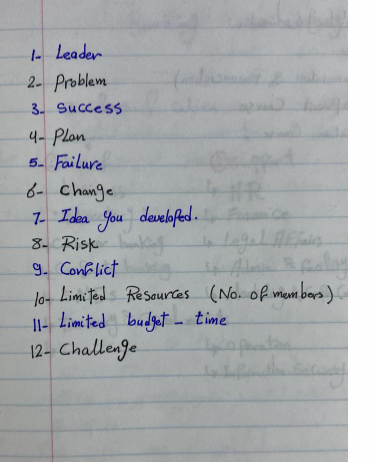 1- Leader
2- Problem
3- Success
4- Plan
5- Failure
6- Change
7- Idea you developed.
8- Risk
9- Conflict
10- Limited Resources (No. of members)
11- Limited budget - time
12- Challenge